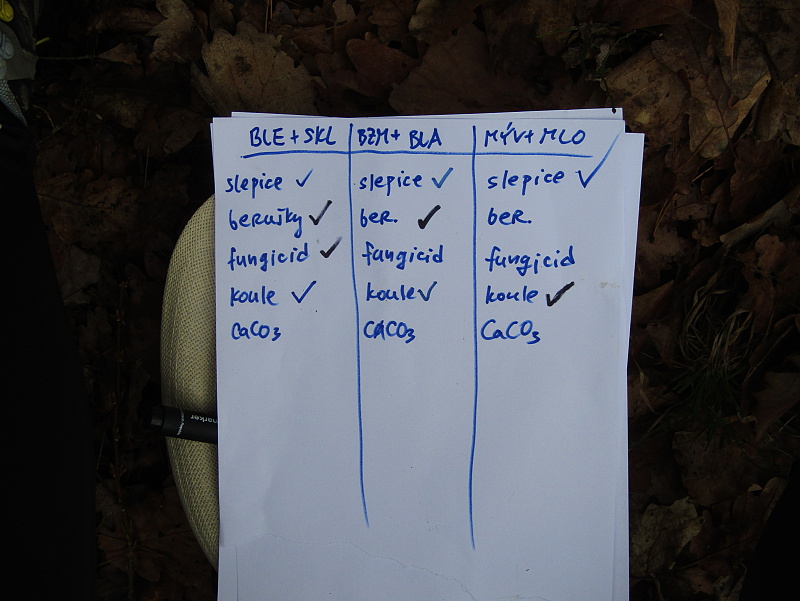 BLE + SKL BZM + BLA MÝV + MLO
slepice ✓ slepice ✓ slepice ✓
berušky ✓ ber. ✓ ber.
fungicid ✓ fungicid fungicid
koule ✓ koule ✓ koule ✓
CaCO3 CaCO3 CaCO3
marker